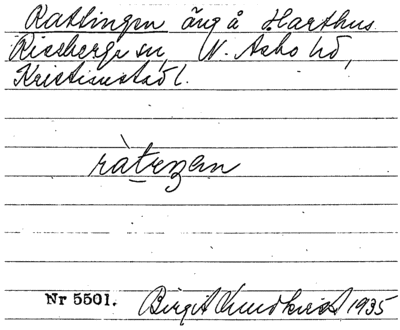 Rattingen äng å Harthus
Riseberga sn, N. Åsbo hd,
Kristianstad l.
ràtezen
Nr 5501. Birgit Lundkvist 1935